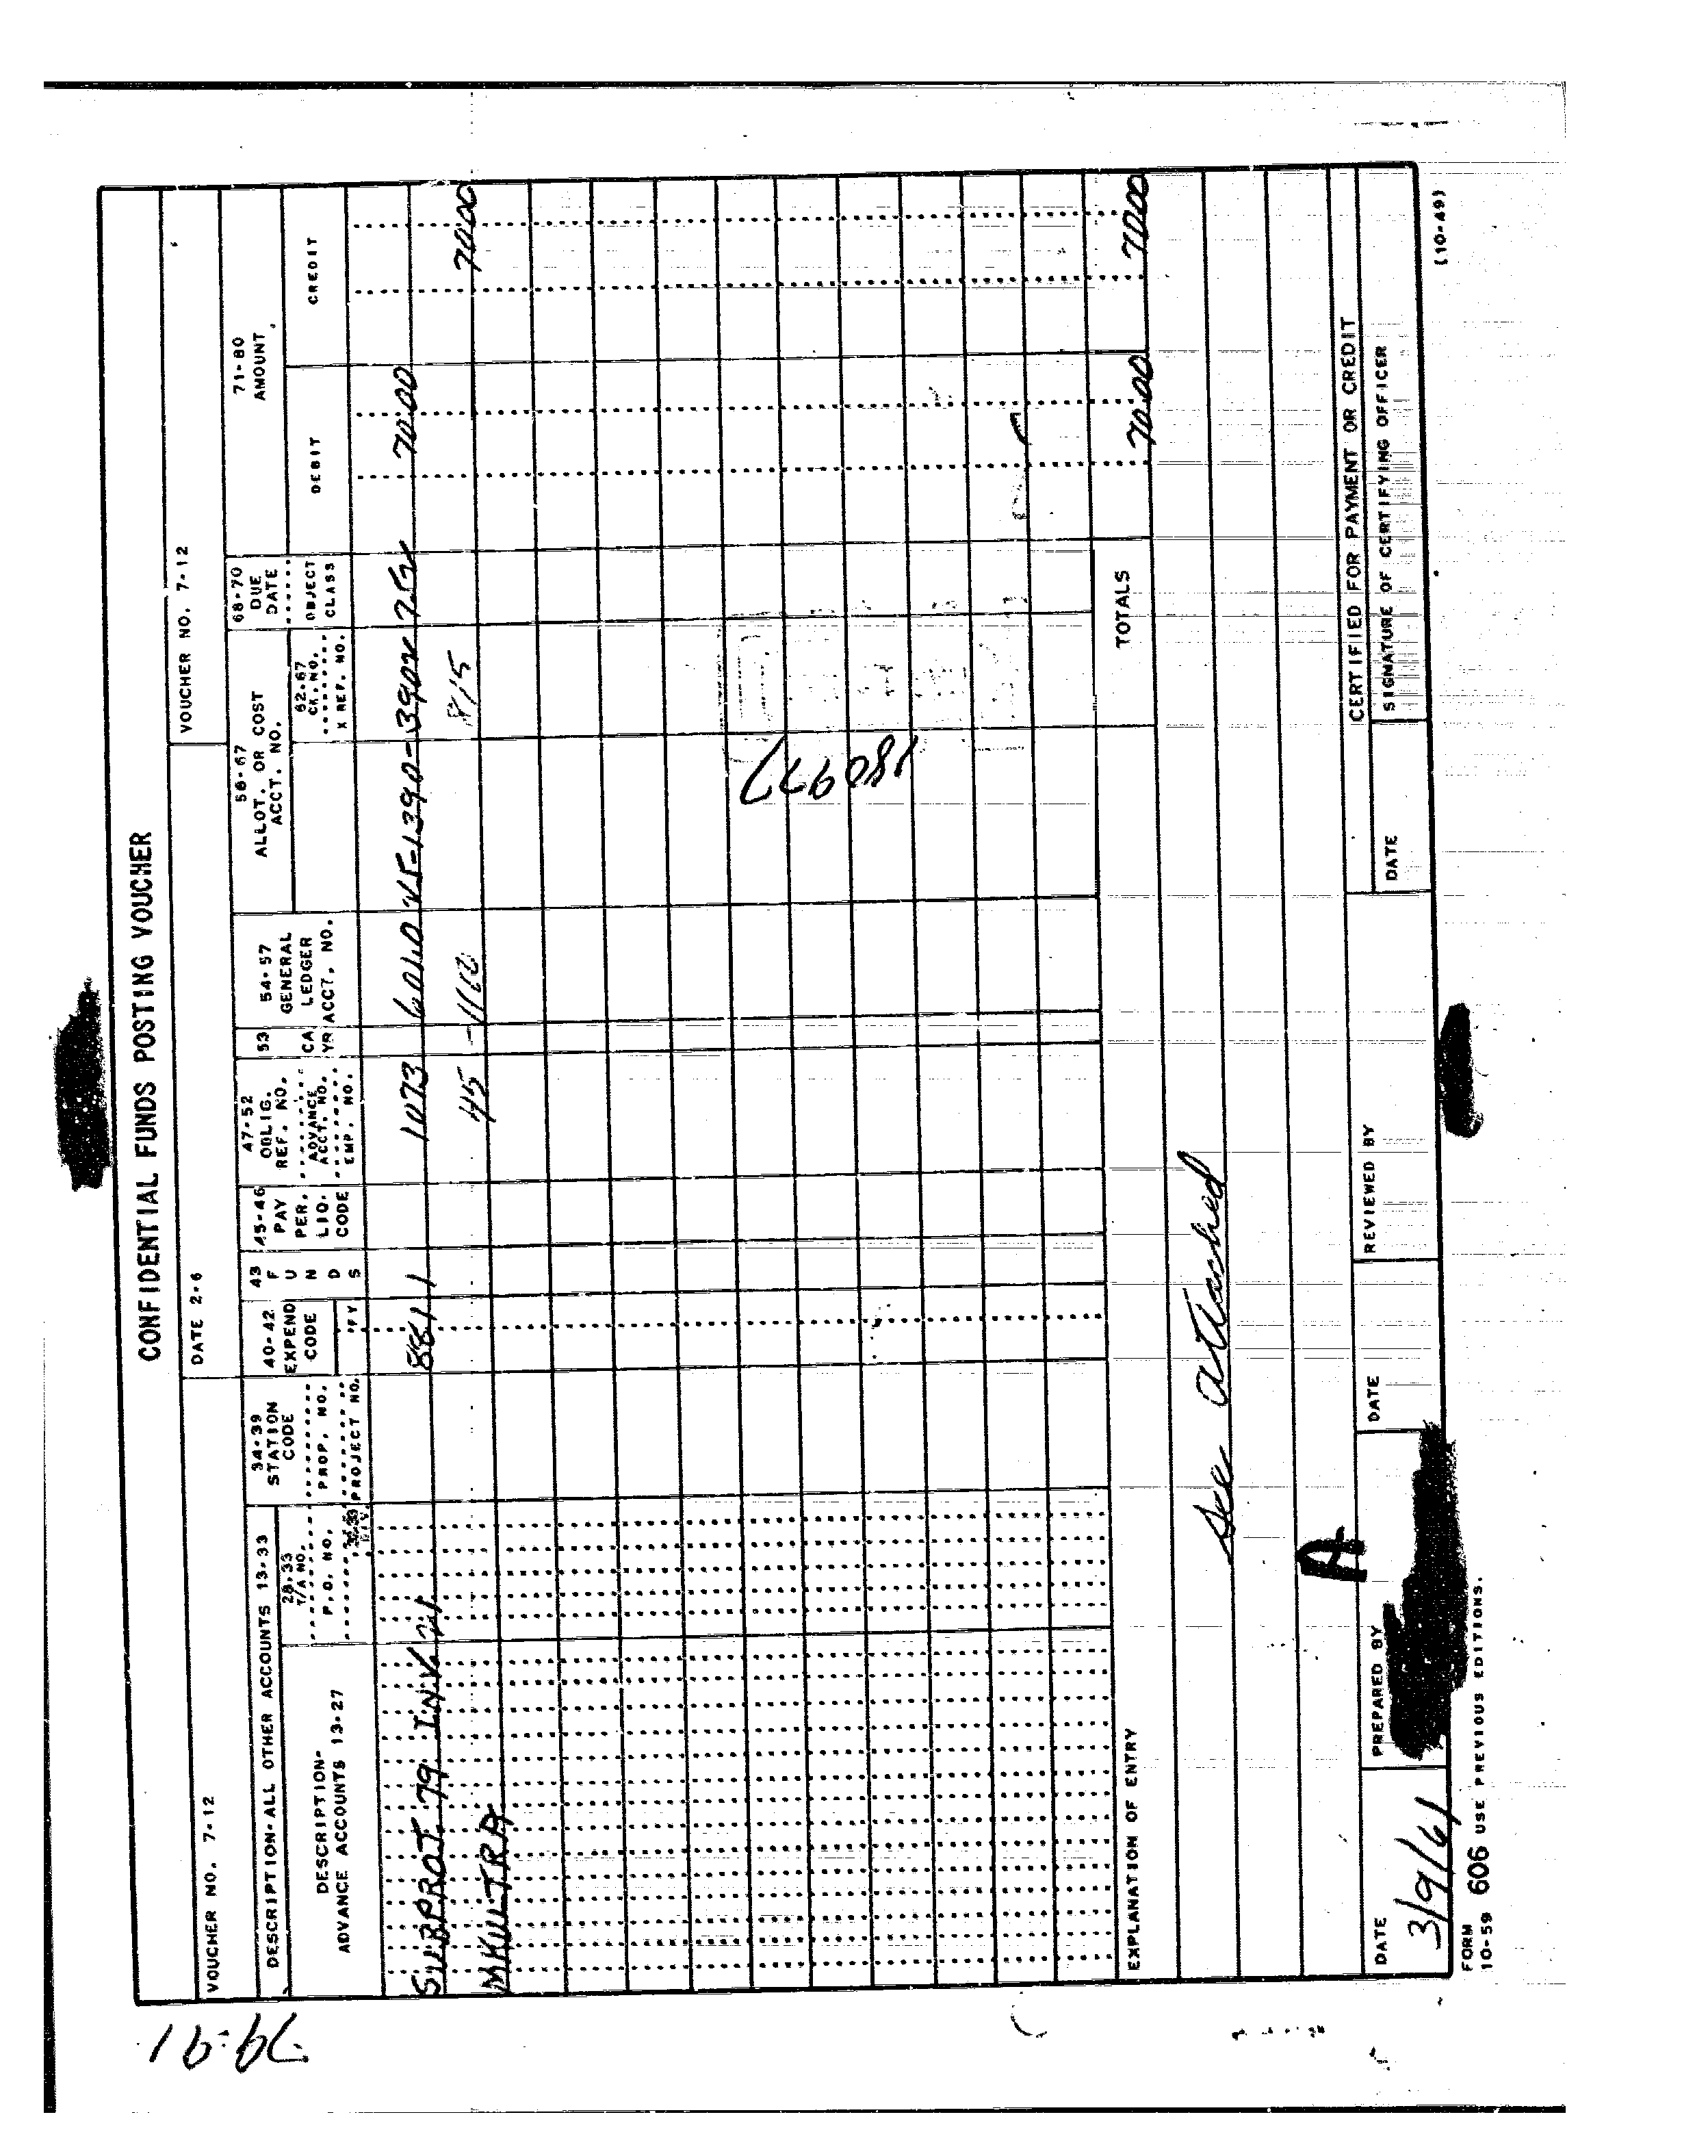 79-91
CONFIDENTIAL FUNDS POSTING VOUCHER
VOUCHER NO. 7-12
DATE 2-6
VOUCHER NO. 7-12
DESCRIPTION-ALL OTHER ACCOUNTS 13-33
DESCRIPTION-
ADVANCE ACCOUNTS 13-27
28-33
T/A NO.
P.O. NO.
34-39
STATION
CODE
PROP. NO.
PROJECT NO.
40-42
EXPEND
CODE
FY
43
F
U
N
D
S
45-46
PAY
PER.
LIQ.
CODE
47-52
OBLIG.
REF. NO.
ADVANCE
ACCT. NO.
EMP. NO.
53
CA
YR
54-57
GENERAL
LEDGER
ACCT. NO.
58-67
ALLOT. OR COST
ACCT. NO.
62-67
CK. NO.
X REF. NO.
68-70
DUE
DATE
OBJECT
CLASS
71-80
AMOUNT
DEBIT
CREDIT
SUBPROJ. 79 INV. 21 881 1 1073 601.0 1390-3902 70.00
MKULTRA 45 815 70.00
180977
TOTALS 70.00 70.00
EXPLANATION OF ENTRY
See attached
A
CERTIFIED FOR PAYMENT OR CREDIT
DATE
3/9/61
PREPARED BY
DATE
REVIEWED BY
DATE
SIGNATURE OF CERTIFYING OFFICER
FORM
10-59 606 USE PREVIOUS EDITIONS.
(10-49)